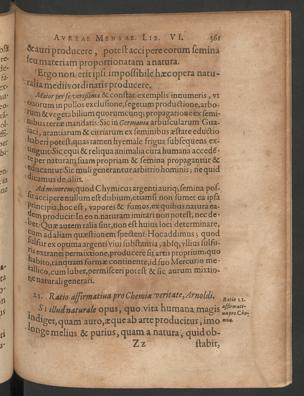 AVREAE MENSAE. LIB. VI. 361
& auri producere, potest accipere eorum semina
seu materiam proportionatam a natura.
Ergo non erit ipsi impossibile hæc opera natu-
ralia mediis ordinatis producere.
Maior per se verissima & constat exemplis innumeris, vt
ouorum in pollos exclusione, segetum productione, arbo-
rum & vegetabilium quorumcunq; propagatione ex semi-
nibus terræ mandatis. Sic in Germania
raci, arantiarum & citriarum ex seminibus æstate eductio
haberi potest, quas tamen hyemale frigus subsequens ex-
tinguit: Sic equi & reliqua animalia cura humana accedé-
te per naturam suam propriam & semina propagantur &
educantur: Sic muli generantur arbitrio hominis; ne quid
dicamus de aliis.
Ad minorem, quod Chymicus argenti auriq; semina pos-
sit accipere nullum est dubium, etiamsi non sumet ea ipsa
principia, hoc est, vapores & fumos, ex quibus natura ea-
dem producit: In eo naturam imitari non potest, nec de-
bet: Quæ autem talia sint, non est huius loci determinare,
cum ad aliam quæstionem spectent: Hoc addimus; quod
sulfur ex optima argenti vius substantia, absq; vllius sulfu-
ris extranei permixtione, producere sit artis proprium, quo
habito, tanquam formæ continente, id suo Mercurio me-
tallico, cum lubet, permisceri potest & sic aurum mixtio-
ne naturali generari.
21. Ratio affirmatiua pro Chemiæ veritate, Arnoldi.
Ratio 21.
affirmati-
ua pro Chy-
mia.
SI illud naturale opus, quo vita humana magis
indiget, quam auro, æque ab arte producitur, imo
longe melius & purius, quam a natura, quid ob-
Zz stabit,